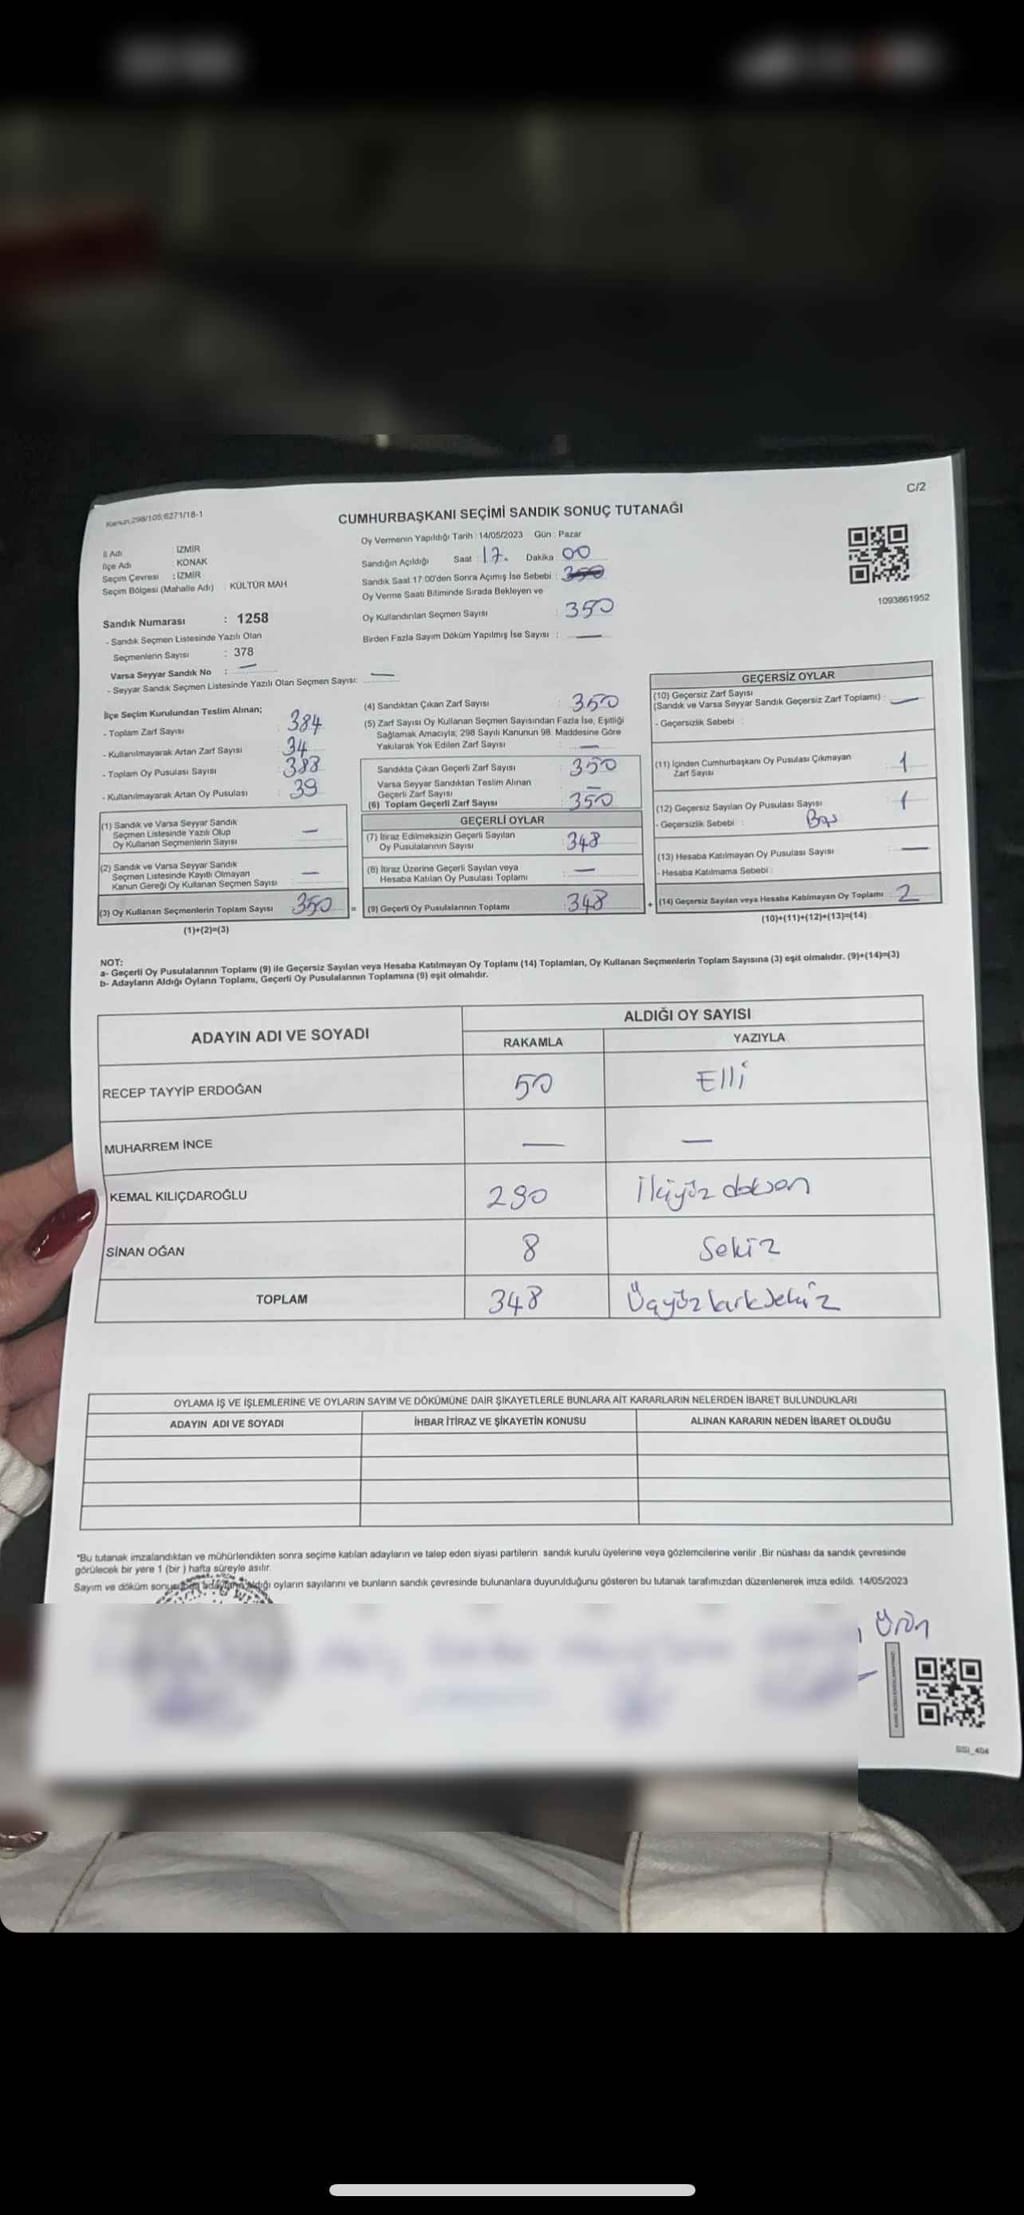 C/2
Kanun;298/105;6271/18-1
CUMHURBAŞKANI SEÇİMİ SANDIK SONUÇ TUTANAĞI
İl Adı : İZMİR
İlçe Adı : KONAK
Seçim Çevresi : İZMİR
Seçim Bölgesi (Mahalle Adı) : KÜLTÜR MAH
Sandık Numarası : 1258
- Sandık Seçmen Listesinde Yazılı Olan
Seçmenlerin Sayısı : 378
Varsa Seyyar Sandık No : —
- Seyyar Sandık Seçmen Listesinde Yazılı Olan Seçmen Sayısı: —
Oy Vermenin Yapıldığı Tarih : 14/05/2023 Gün : Pazar
Sandığın Açıldığı Saat 17. Dakika 00
Sandık Saat 17:00'den Sonra Açımış İse Sebebi : 350
Oy Verme Saati Bitiminde Sırada Bekleyen ve
Oy Kullandırılan Seçmen Sayısı : 350
Birden Fazla Sayım Döküm Yapılmış İse Sayısı : —
1093861952
İlçe Seçim Kurulundan Teslim Alınan;
- Toplam Zarf Sayısı 384
- Kullanılmayarak Artan Zarf Sayısı 34
- Toplam Oy Pusulası Sayısı 383
- Kullanılmayarak Artan Oy Pusulası 39
(1) Sandık ve Varsa Seyyar Sandık
Seçmen Listesinde Yazılı Olup
Oy Kullanan Seçmenlerin Sayısı —
(2) Sandık ve Varsa Seyyar Sandık
Seçmen Listesinde Kayıtlı Olmayan
Kanun Gereği Oy Kullanan Seçmen Sayısı —
(3) Oy Kullanan Seçmenlerin Toplam Sayısı 350 =
(1)+(2)=(3)
(4) Sandıktan Çıkan Zarf Sayısı : 350
(5) Zarf Sayısı Oy Kullanan Seçmen Sayısından Fazla İse, Eşitliği
Sağlamak Amacıyla; 298 Sayılı Kanunun 98. Maddesine Göre
Yakılarak Yok Edilen Zarf Sayısı : —
Sandıkta Çıkan Geçerli Zarf Sayısı : 350
Varsa Seyyar Sandıktan Teslim Alınan
Geçerli Zarf Sayısı : —
(6) Toplam Geçerli Zarf Sayısı : 350
GEÇERLİ OYLAR
(7) İtiraz Edilmeksizin Geçerli Sayılan
Oy Pusulalarının Sayısı : 348
(8) İtiraz Üzerine Geçerli Sayılan veya
Hesaba Katılan Oy Pusulası Toplamı : —
(9) Geçerli Oy Pusulalarının Toplamı : 348 +
GEÇERSİZ OYLAR
(10) Geçersiz Zarf Sayısı
(Sandık ve Varsa Seyyar Sandık Geçersiz Zarf Toplamı) : —
- Geçersizlik Sebebi :
(11) İçinden Cumhurbaşkanı Oy Pusulası Çıkmayan
Zarf Sayısı : 1
(12) Geçersiz Sayılan Oy Pusulası Sayısı : 1
- Geçersizlik Sebebi :
(13) Hesaba Katılmayan Oy Pusulası Sayısı : —
- Hesaba Katılmama Sebebi :
(14) Geçersiz Sayılan veya Hesaba Katılmayan Oy Toplamı : 2
(10)+(11)+(12)+(13)=(14)
NOT:
a- Geçerli Oy Pusulalarının Toplamı (9) ile Geçersiz Sayılan veya Hesaba Katılmayan Oy Toplamı (14) Toplamları, Oy Kullanan Seçmenlerin Toplam Sayısına (3) eşit olmalıdır. (9)+(14)=(3)
b- Adayların Aldığı Oyların Toplamı, Geçerli Oy Pusulalarının Toplamına (9) eşit olmalıdır.
ADAYIN ADI VE SOYADI
ALDIĞI OY SAYISI
RAKAMLA YAZIYLA
RECEP TAYYİP ERDOĞAN 50 Elli
MUHARREM İNCE — —
KEMAL KILIÇDAROĞLU 290 İkiyüz doksan
SİNAN OĞAN 8 Sekiz
TOPLAM 348 Üçyüz kırk sekiz
OYLAMA İŞ VE İŞLEMLERİNE VE OYLARIN SAYIM VE DÖKÜMÜNE DAİR ŞİKAYETLERLE BUNLARA AİT KARARLARIN NELERDEN İBARET BULUNDUKLARI
ADAYIN ADI VE SOYADI İHBAR İTİRAZ VE ŞİKAYETİN KONUSU ALINAN KARARIN NEDEN İBARET OLDUĞU
*Bu tutanak imzalandıktan ve mühürlendikten sonra seçime katılan adayların ve talep eden siyasi partilerin sandık kurulu üyelerine veya gözlemcilerine verilir .Bir nüshası da sandık çevresinde
görülecek bir yere 1 (bir ) hafta süreyle asılır.
Sayım ve döküm adayların aldığı oyların sayılarını ve bunların sandık çevresinde bulunanlara duyurulduğunu gösteren bu tutanak tarafımızdan düzenlenerek imza edildi. 14/05/2023